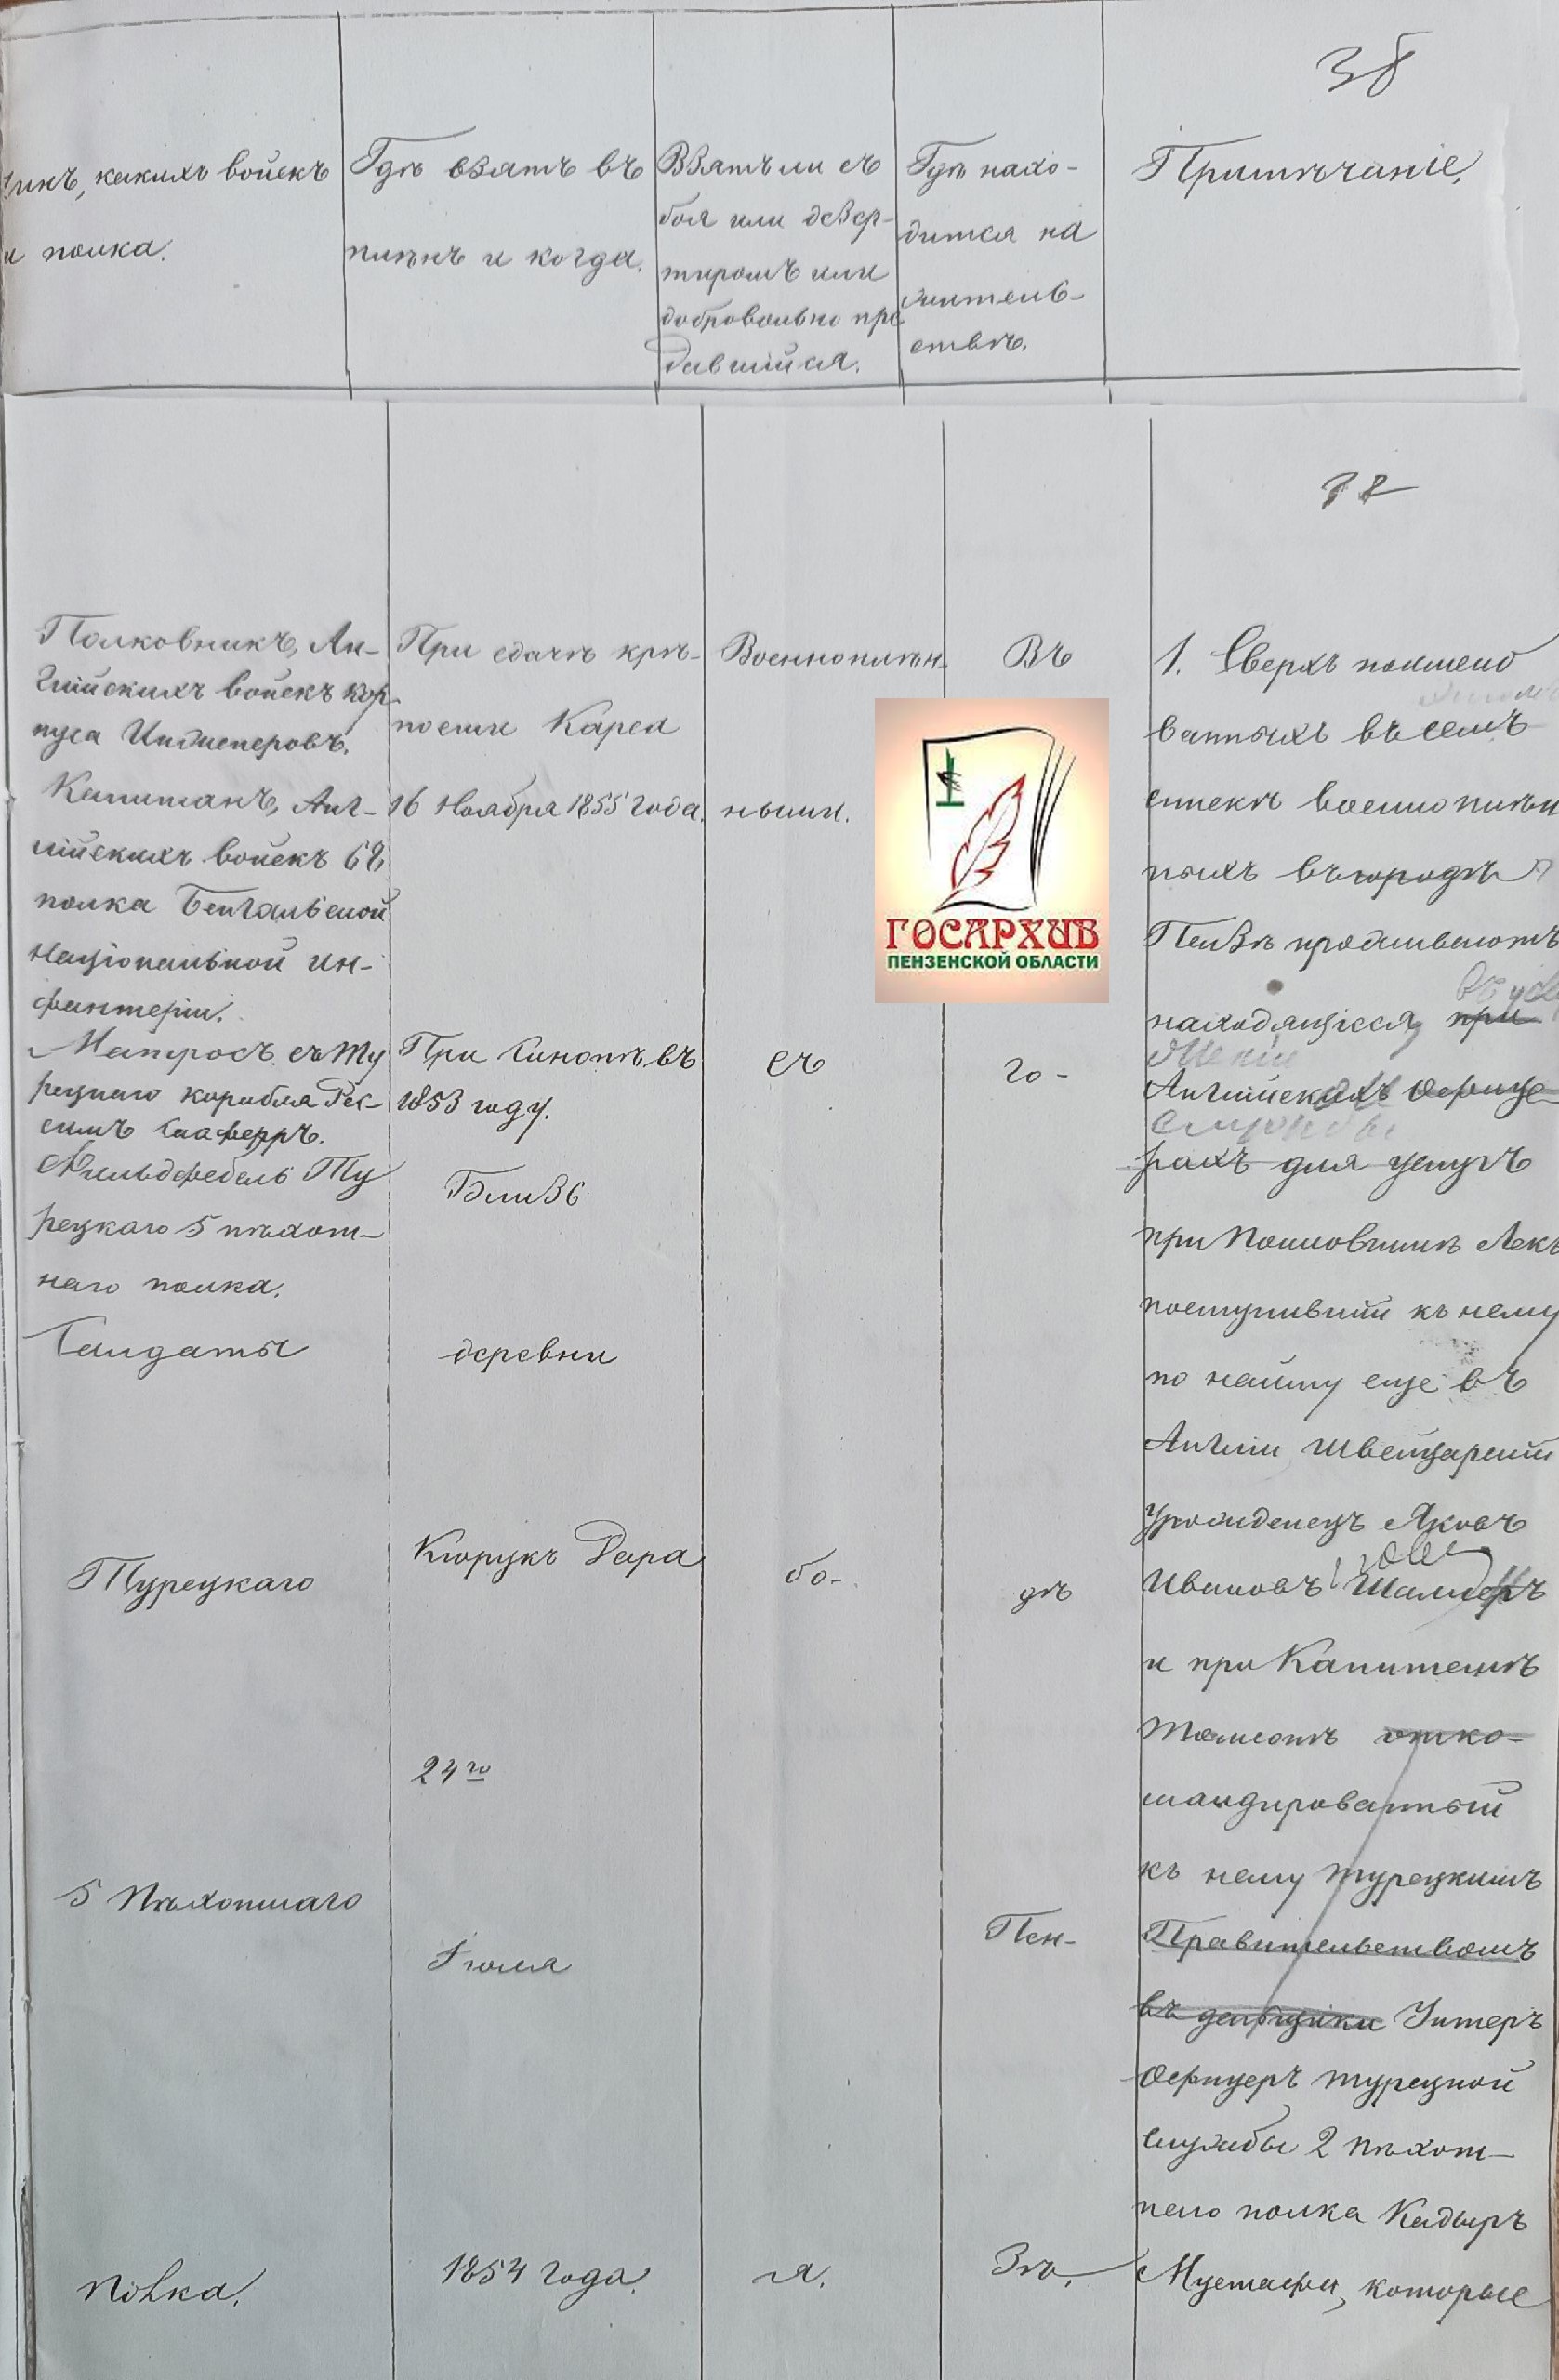 38
Чинъ, какихъ войскъ
и полка.
Гдѣ взятъ въ
плѣнъ и когда.
Взятъ ли съ
боя или дезер-
тиромъ или
добровольно пре
давшійся.
Гдѣ нахо-
дится на
житель-
ствѣ.
Примѣчаніе.
Полковникъ, Ан-
глійскихъ войскъ кор
пуса Инженеровъ.
Капитанъ, Анг-
лійскихъ войскъ 68
полка Бенгальской
Націонильной ин-
фантеріи.
Матросъ съ Ту
рецкаго корабля
Фельдфебель Ту
рецкаго 5 пѣхот-
наго полка.
Солдаты
Турецкаго
5 Пѣхотнаго
полка.
При сдачѣ крѣ-
пости Карса
16 Ноября 1855 года.
При Синопѣ въ
1853 году.
Близь
деревни
Кюрукъ Дара
24го
Іюля
1854 года.
Военноплѣн-
ныии.
съ
бо-
я.
Въ
го-
дѣ
Пен-
зѣ.
ГОСАРХИВ
ПЕНЗЕНСКОЙ ОБЛАСТИ
1. Сверхъ поимено
ванныхъ въ семъ
спискѣ военноплѣн
ныхъ въ городѣ
Пензѣ проживаютъ
находящіеся при
Англійскихъ Офице
рахъ для услугъ
при Полковникѣ Лекъ
поступившій къ нему
по найму еще въ
Англіи Швейцарскій
уроженецъ Яковъ
Ивановъ
и при Капитанѣ
Томсонъ отко-
мандированный
къ нему турецкимъ
Правительствомъ
въ деньщики Унтеръ
Офицеръ турецкой
службы 2 пѣхот-
наго полка Кадыръ
Мустафа, которые